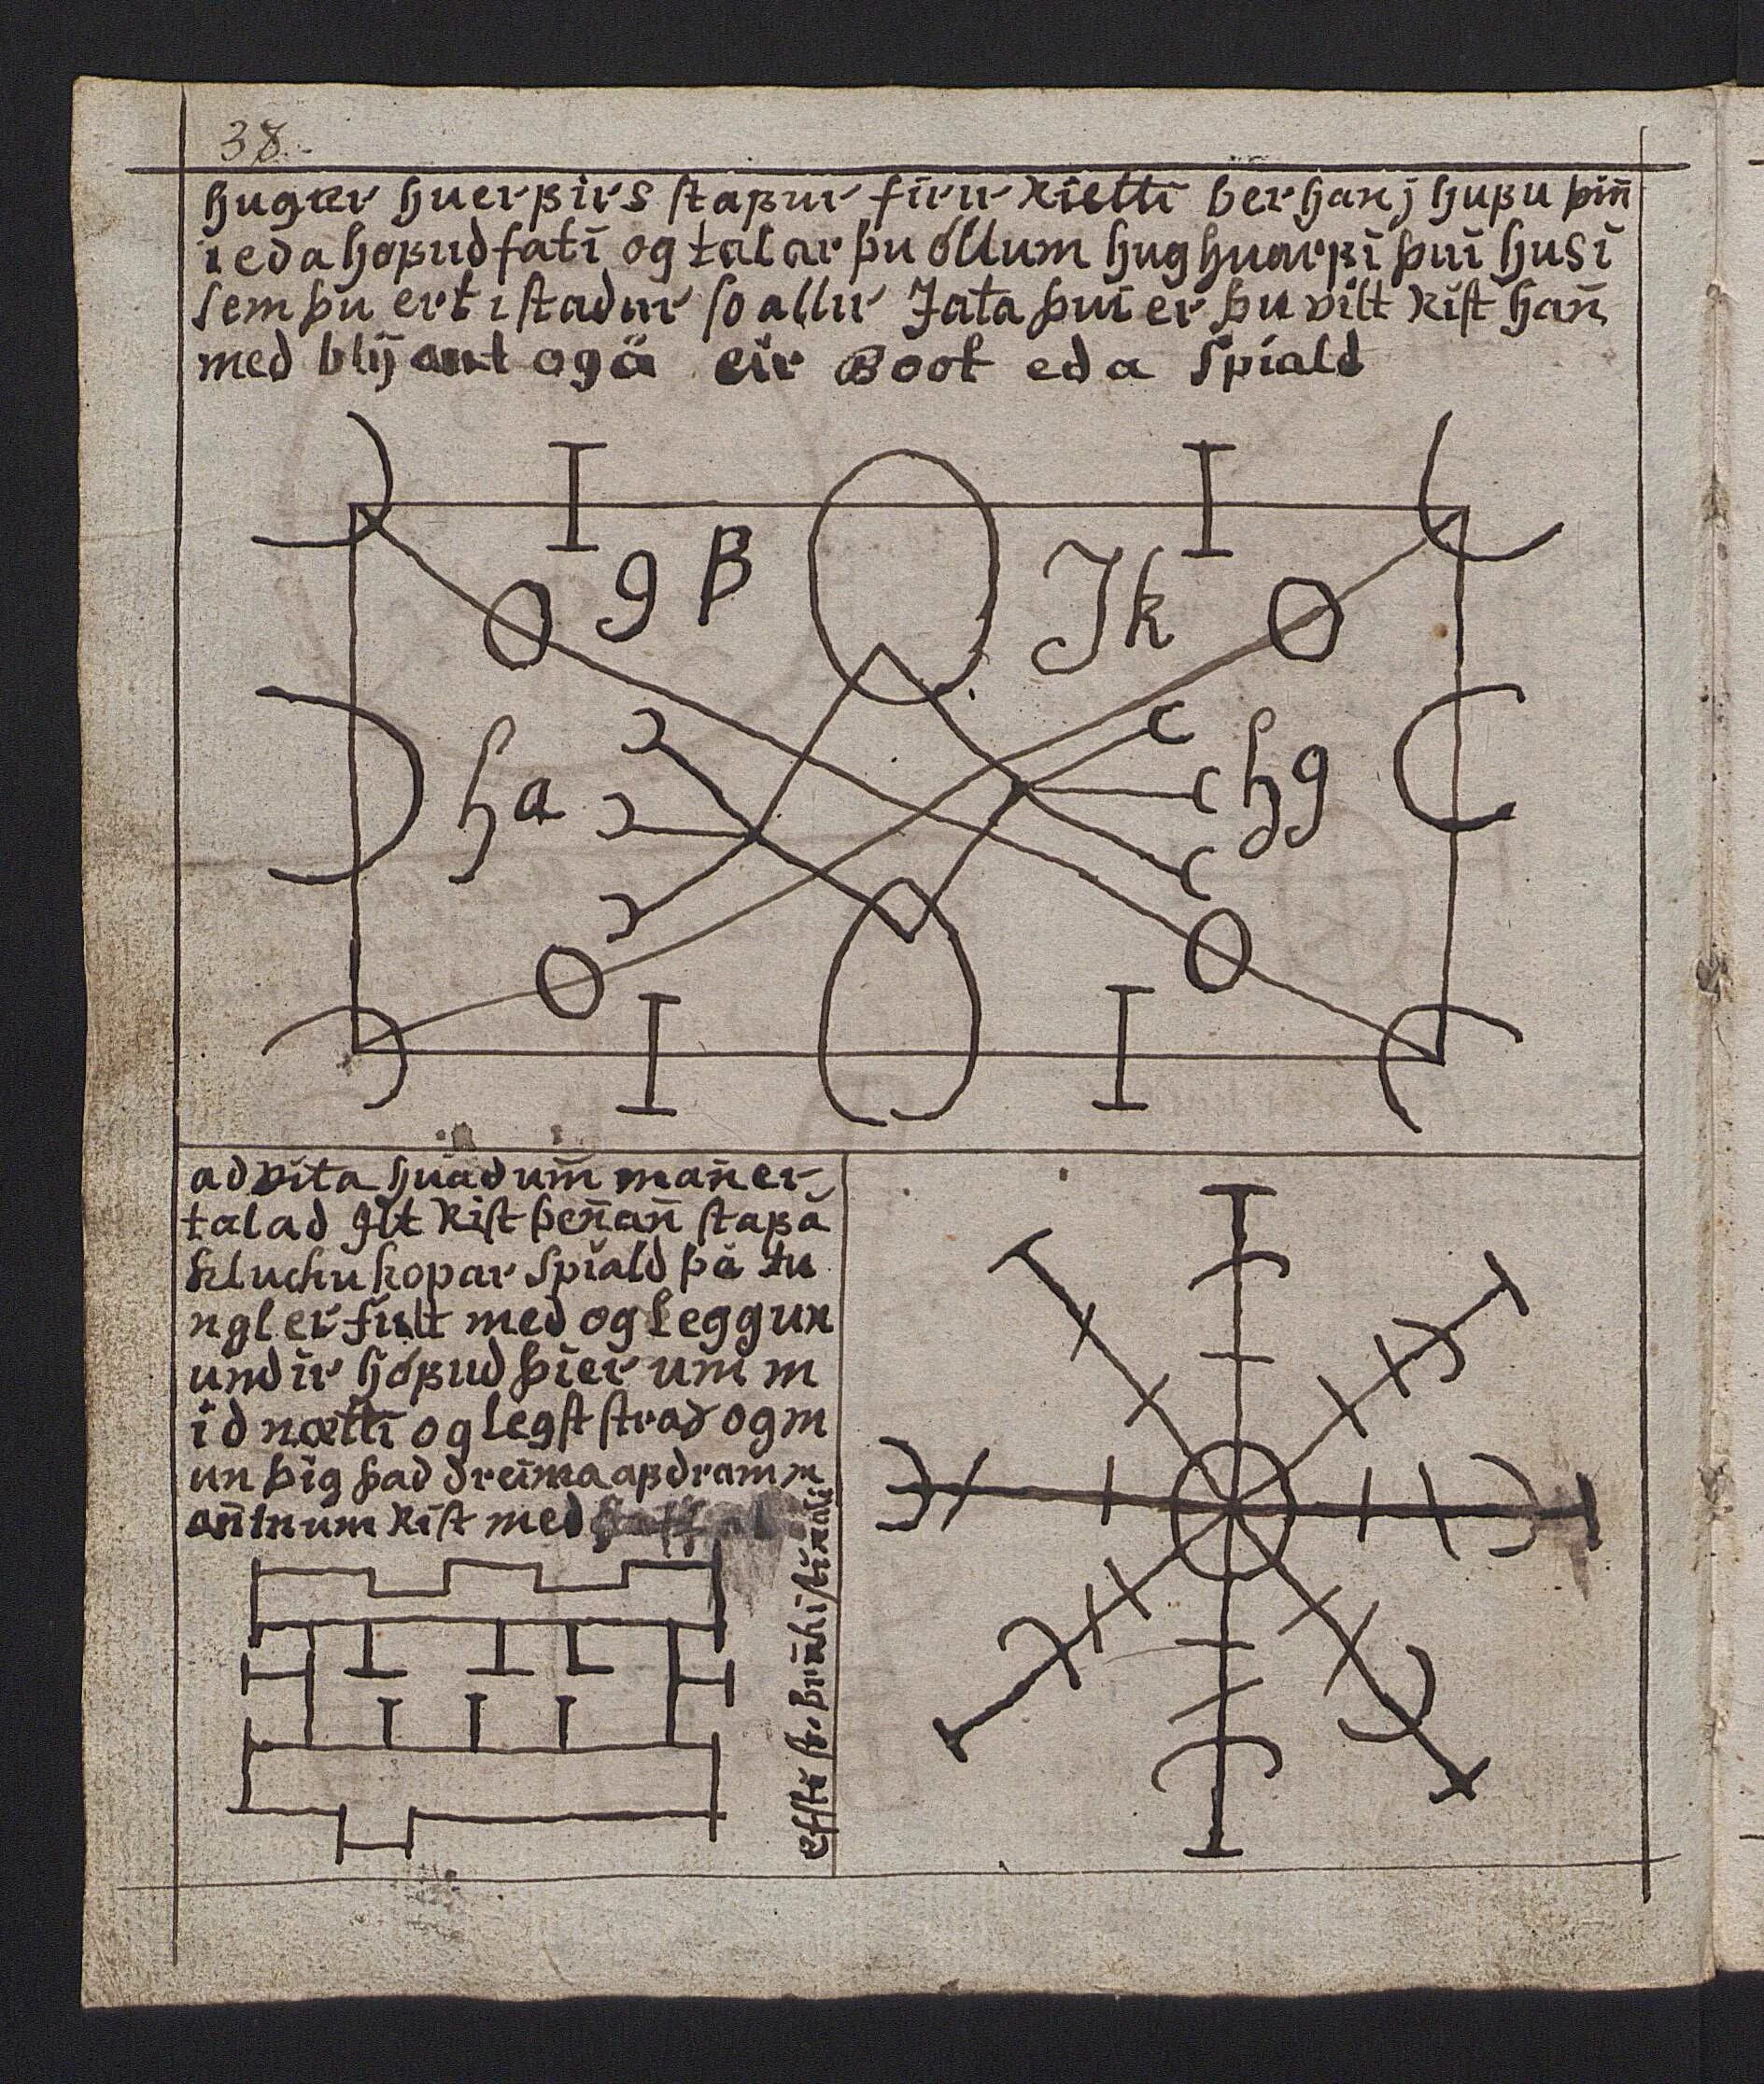 38.
hugar huerßirs staßur firir Kietti ber han j hußu þin̄
i eda hoßudfati og talar þu óllum hughuarßi þui husi
sem þu ert i stadur so allir Jata þui er þu vilt Rist han̄
med blÿant og ä eir Boot eda Spiald
I I
g ß Jk
ha hg
I I
ad vita huad um̄ man̄ er
talad Jlt Rist þen̄an̄ staß á
kluchukopar Spiald þá tu
ngl er fult med og Leggun
undir hóßud þier um m
id nætti og legst strax og m
un þig þad dreima aßdramm
an̄inum Rist med